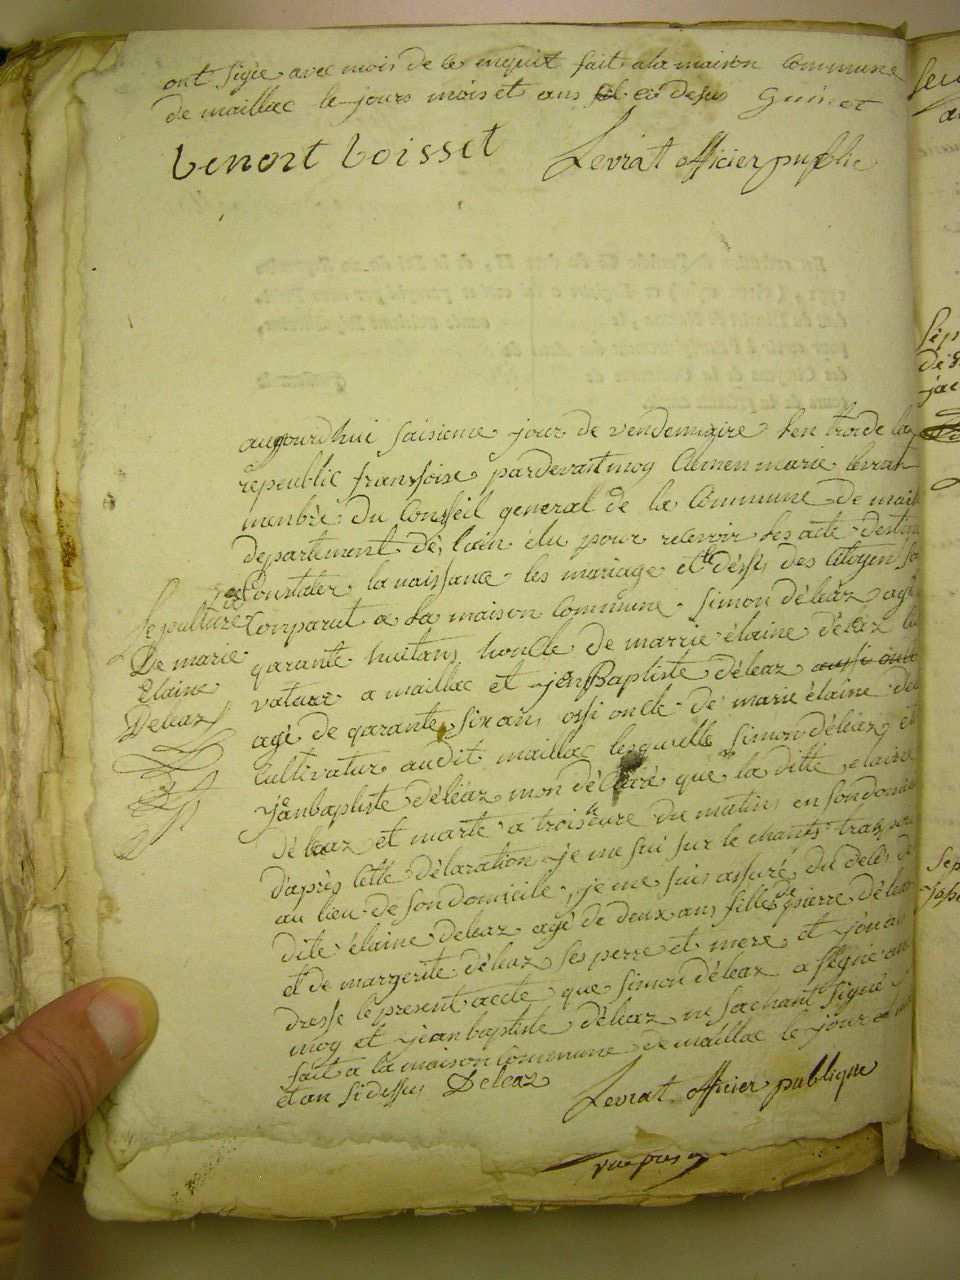 ont signé avec mois de ce enquit fait a la maison commune
de maillac le jours mois et ans ci desus Guinet
benoit boisset Levrat officier publi
aujourdhui saisieme jour de vendemiaire l'en trois de la
republic fransoise pardevant moy Clemen marie levrat
menbre du Conseil general de la Commune de mail
departement de lain élu pour relevoir les acte destiné
Constater la naissance les mariage et le déssés des Citoyen
Comparut a la maison Commune simon déleaz agé
qarante huitans honcle de marrie élaine déleaz
vature a maillac et jan Baptiste déleaz
agé de qarante six ans ossi oncle de marie élaine
Cultivatur audit maillac lesquelle simon déleaz et
janbaptiste déléaz mon déclaré que la ditte elaine
déleaz et marte a trois eure du matin en son domi
d'après cette déclaration je me sui sur le chants transpor
au lieu de son domicile, je me suis assuré du décés
dite élaine deleaz agé de deux ans fille de pierre délea
et de margerite déleaz ses perre et mere et jen ai
dresse le present acte que simon déleaz a signe
moy et jean baptiste déleaz ne sachant signé
fait a la maison Commune de maillac le jour
et an sidessus Deleaz Levrat officier publique
Sepulture
De marie
élaine
Deleaz